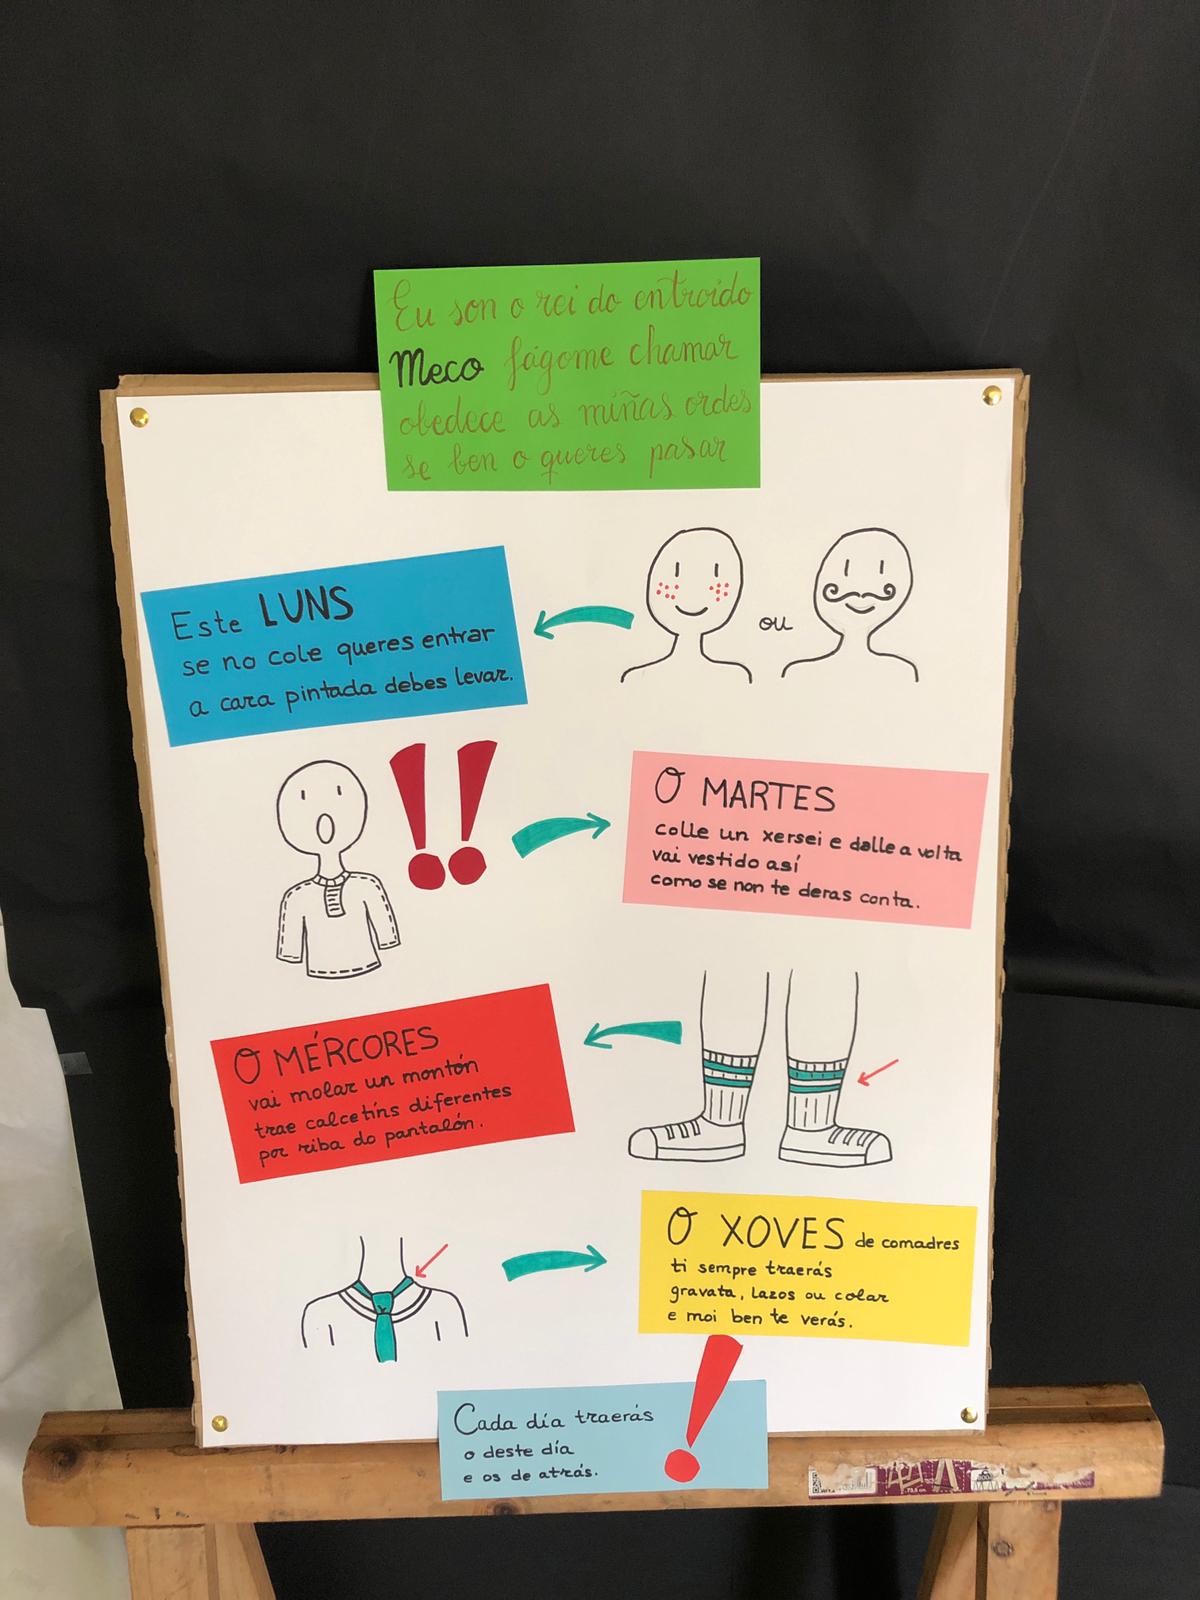 Eu son o rei do entroido
Meco fágome chamar
obedece as miñas ordes
se ben o queres pasar
Este LUNS
se no cole queres entrar
a cara pintada debes levar.
ou
O MARTES
colle un xersei e dalle a volta
vai vestido así
como se non te deras conta.
!!
O MÉRCORES
vai molar un montón
trae calcetíns diferentes
por riba do pantalón.
O XOVES de comadres
ti sempre traerás
gravata, lazos ou colar
e moi ben te verás.
Cada día traerás
o deste día
e os de atrás.
!